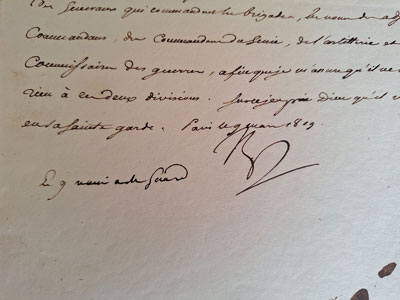 des Generaux qui commandent les brigades, les noms des adj
Commandans, du Commandant du Genie, de l'artillerie et
Commissaire des guerres, afin que je m'assure qu'il ne
rien à ces deux divisions. Sur ce je prie Dieu qu'il v
en sa Sainte garde. Paris le 9 mars 1809.